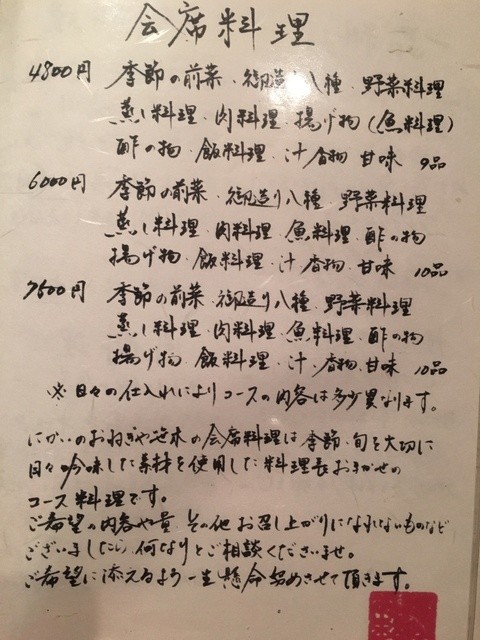 会席料理
4800円 季節の前菜・御造り八種・野菜料理
蒸し料理・肉料理・揚げ物(魚料理)
酢の物・飯料理・汁・香物・甘味 9品
6000円 季節の前菜・御造り八種・野菜料理
蒸し料理・肉料理・魚料理・酢の物
揚げ物・飯料理・汁・香物・甘味 10品
7500円 季節の前菜・御造り八種・野菜料理
蒸し料理・肉料理・魚料理・酢の物
揚げ物・飯料理・汁・香物・甘味 10品
※日々の仕入れによりコースの内容は多少異なります。
にかいのおねぎや笹木の会席料理は季節・旬を大切に
日々吟味した素材を使用した料理長おまかせの
コース料理です。
ご希望の内容や量、その他お召し上がりになれないものなど
ございましたら何なりとご相談くださいませ。
ご希望に添えるよう一生懸命努めさせて頂きます。